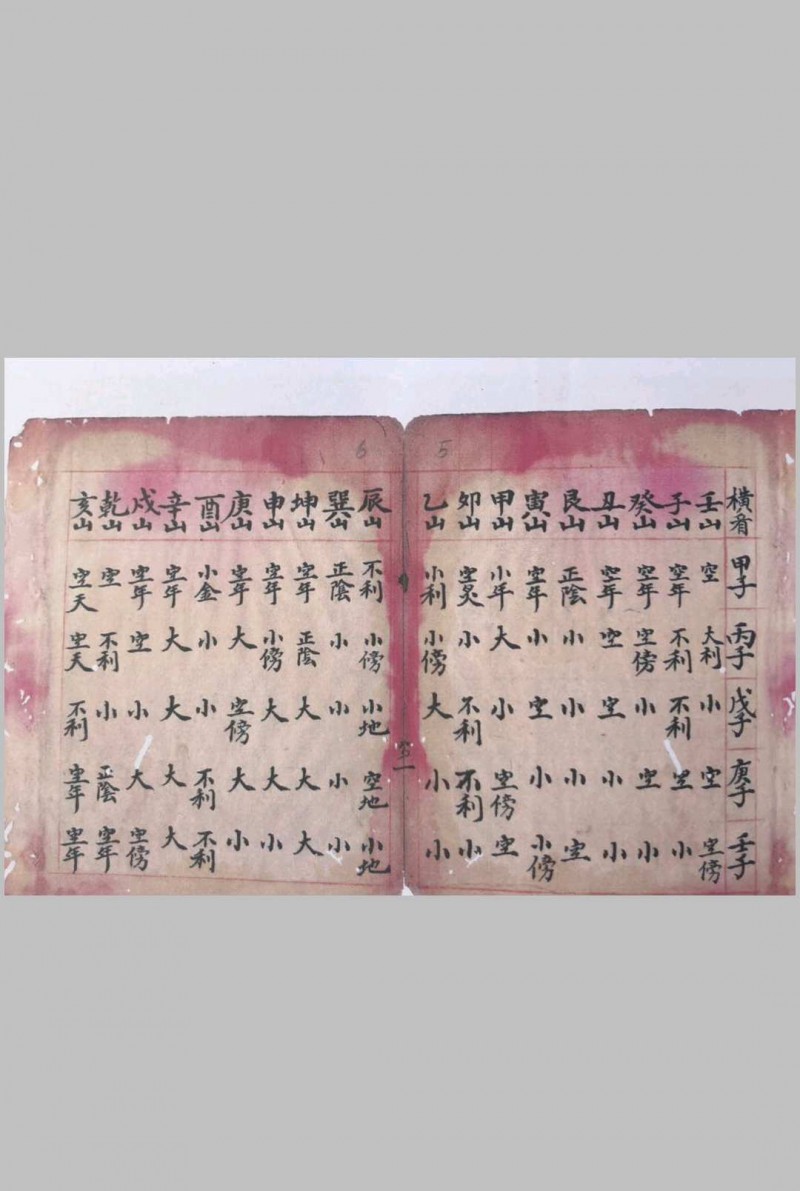 5
橫看 甲子 丙子 戊子 庚子 壬子
壬山 空 大利 小 空 空傍
子山 空年 不利 不利 空 小
癸山 空年 空傍 小 空 小
丑山 空年 空 空 小 小
艮山 正陰 小 小 小 空
寅山 空年 小 空 小 小傍
甲山 小年 大 小 空傍 空
卯山 空炅 小 不利 不利 小
乙山 小利 小傍 大 小 小
6
辰山 不利 小傍 小地 空地 小地
巽山 正陰 小 小 小 小
坤山 空年 正陰 大 大 大
申山 空年 小傍 大 大 小
庚山 空年 大 空傍 大 小
酉山 小金 小 小 不利 不利
辛山 空年 大 大 大 大
戌山 空年 空 小 大 空傍
乾山 空 不利 小 正陰 空年
亥山 空天 空天 不利 空年 空年